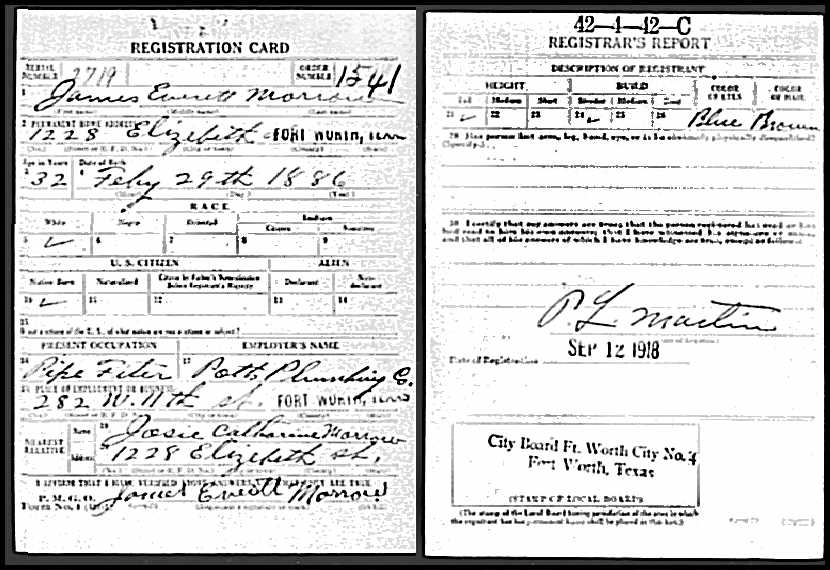 REGISTRATION CARD
SERIAL NUMBER 3719 ORDER NUMBER 1541
1 James Everett Morrow
(First name) (Middle name) (Last name)
2 PERMANENT HOME ADDRESS
1228 Elizebeth FORT WORTH,
Age in Years Date of Birth
3 32 4 Feby 29th 1886
(Month) (Day) (Year)
RACE
White Negro Oriental Indian
Citizen Noncitizen
5 ✓ 6 7 8 9
U. S. CITIZEN ALIEN
Native Born Naturalized Citizen by Father's Naturalization Before Registrant's Majority Declarant Non-declarant
10 ✓ 11 12 13 14
15
If not a citizen of the U. S., of what nation are you a citizen or subject?
PRESENT OCCUPATION EMPLOYER'S NAME
16 Pipe Fiter 17 Potts Plumbing C.
18 PLACE OF EMPLOYMENT OR BUSINESS
282 W. 11th st. FORT WORTH,
NEAREST RELATIVE
Name 19 Josie Catharine Morrow
Address 20 1228 Elizebeth st.
I AFFIRM THAT I HAVE VERIFIED ABOVE ANSWERS AND THAT THEY ARE TRUE
P. M. G. O.
Form No. 1 James Everett Morrow
42-1-42-C
REGISTRAR'S REPORT
DESCRIPTION OF REGISTRANT
HEIGHT BUILD COLOR OF EYES COLOR OF HAIR
Tall Medium Short Slender Medium Stout
21 ✓ 22 23 24 ✓ 25 26 Blue Brown
29 Has person lost arm, leg, hand, eye, or is he obviously physically disqualified?
(Specify.)
30 I certify that my answers are true; that the person registered has read or has
had read to him his own answers; that I have witnessed his signature or mark,
and that all of his answers of which I have knowledge are true, except as follows:
P. L. Martin
SEP 12 1918
Date of Registration
City Board Ft. Worth City No. 4
Fort Worth, Texas
(STAMP OF LOCAL BOARD)
(The stamp of the Local Board having jurisdiction of the area in which
the registrant has his permanent home shall be placed in this box.)